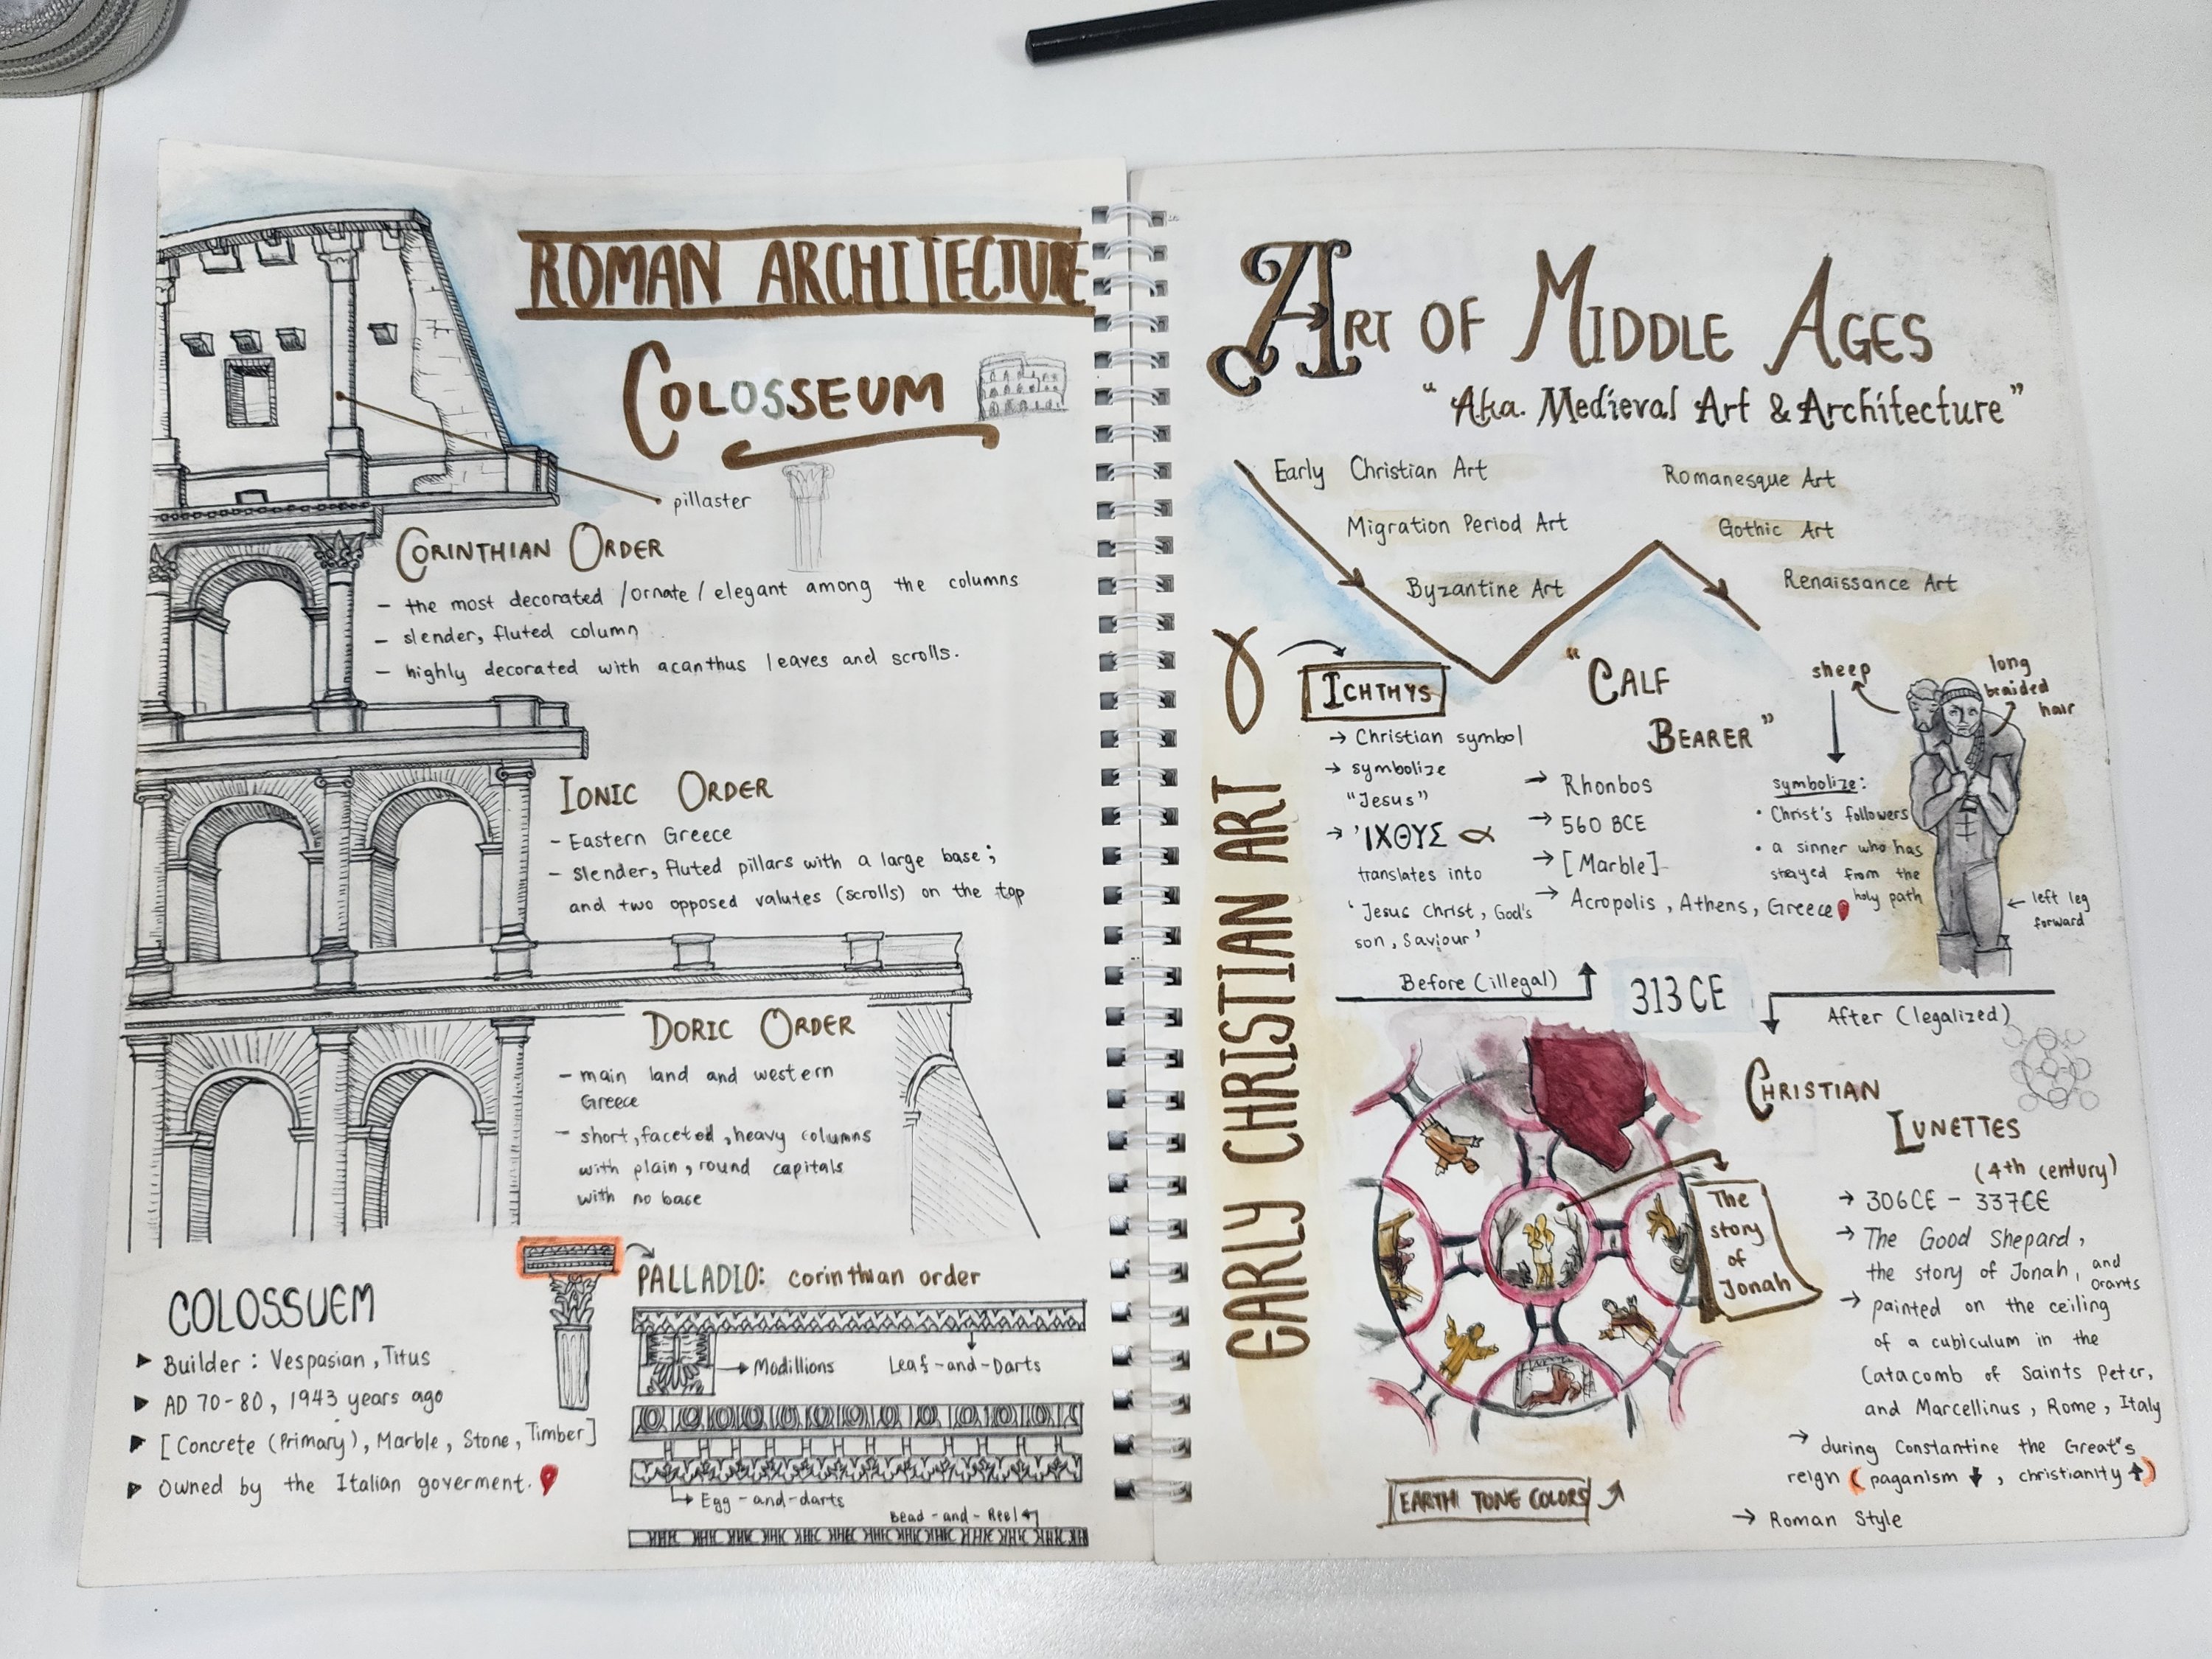 ROMAN ARCHITECTURE
COLOSSEUM
pillaster
CORINTHIAN ORDER
- the most decorated /ornate/ elegant among the columns
- slender, fluted column
- highly decorated with acanthus leaves and scrolls.
IONIC ORDER
- Eastern Greece
- slender, fluted pillars with a large base;
and two opposed valutes (scrolls) on the top
DORIC ORDER
- main land and western
Greece
- short, faceted, heavy columns
with plain, round capitals
with no base
COLOSSUEM
Builder: Vespasian, Titus
AD 70-80, 1943 years ago
[Concrete (Primary), Marble, Stone, Timber]
Owned by the Italian goverment.
PALLADIO: corinthian order
Modillions
Leaf-and-Darts
Egg-and-darts
Bead-and-Reel
ART OF MIDDLE AGES
"Aka. Medieval Art & Architecture"
Early Christian Art
Migration Period Art
Byzantine Art
Romanesque Art
Gothic Art
Renaissance Art
EARLY CHRISTIAN ART
ICHTHYS
→ Christian symbol
→ symbolize
"Jesus"
→ 'ΙΧΘΥΣ
translates into
'Jesus Christ, God's
son, Saviour'
"CALF
BEARER"
→ Rhonbos
→ 560 BCE
→ [Marble]
→ Acropolis, Athens, Greece
sheep
long
braided
hair
symbolize:
• Christ's followers
• a sinner who has
strayed from the
holy path
← left leg
forward
Before (illegal)
313 CE
After (legalized)
The
story
of
Jonah
EARTH TONE COLORS
CHRISTIAN
LUNETTES
(4th century)
→ 306CE - 337CE
→ The Good Shepard,
the story of Jonah, and
orants
→ painted on the ceiling
of a cubiculum in the
Catacomb of Saints Peter,
and Marcellinus, Rome, Italy
→ during Constantine the Great's
reign (paganism ↓, christianity ↑)
→ Roman Style